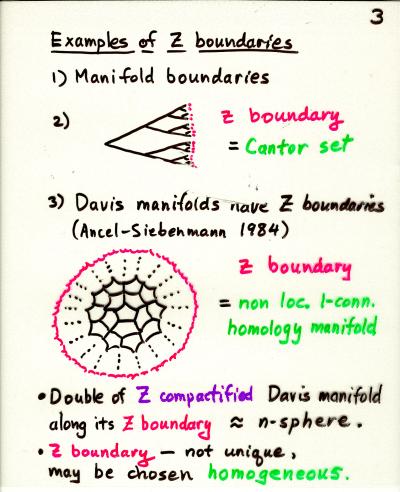 3
Examples of Z boundaries
1) Manifold boundaries
2)
Z boundary
= Cantor set
3) Davis manifolds have Z boundaries
(Ancel-Siebenmann 1984)
Z boundary
= non loc. 1-conn.
homology manifold
• Double of Z compactified Davis manifold
along its Z boundary ≈ n-sphere.
• Z boundary — not unique,
may be chosen homogeneous.